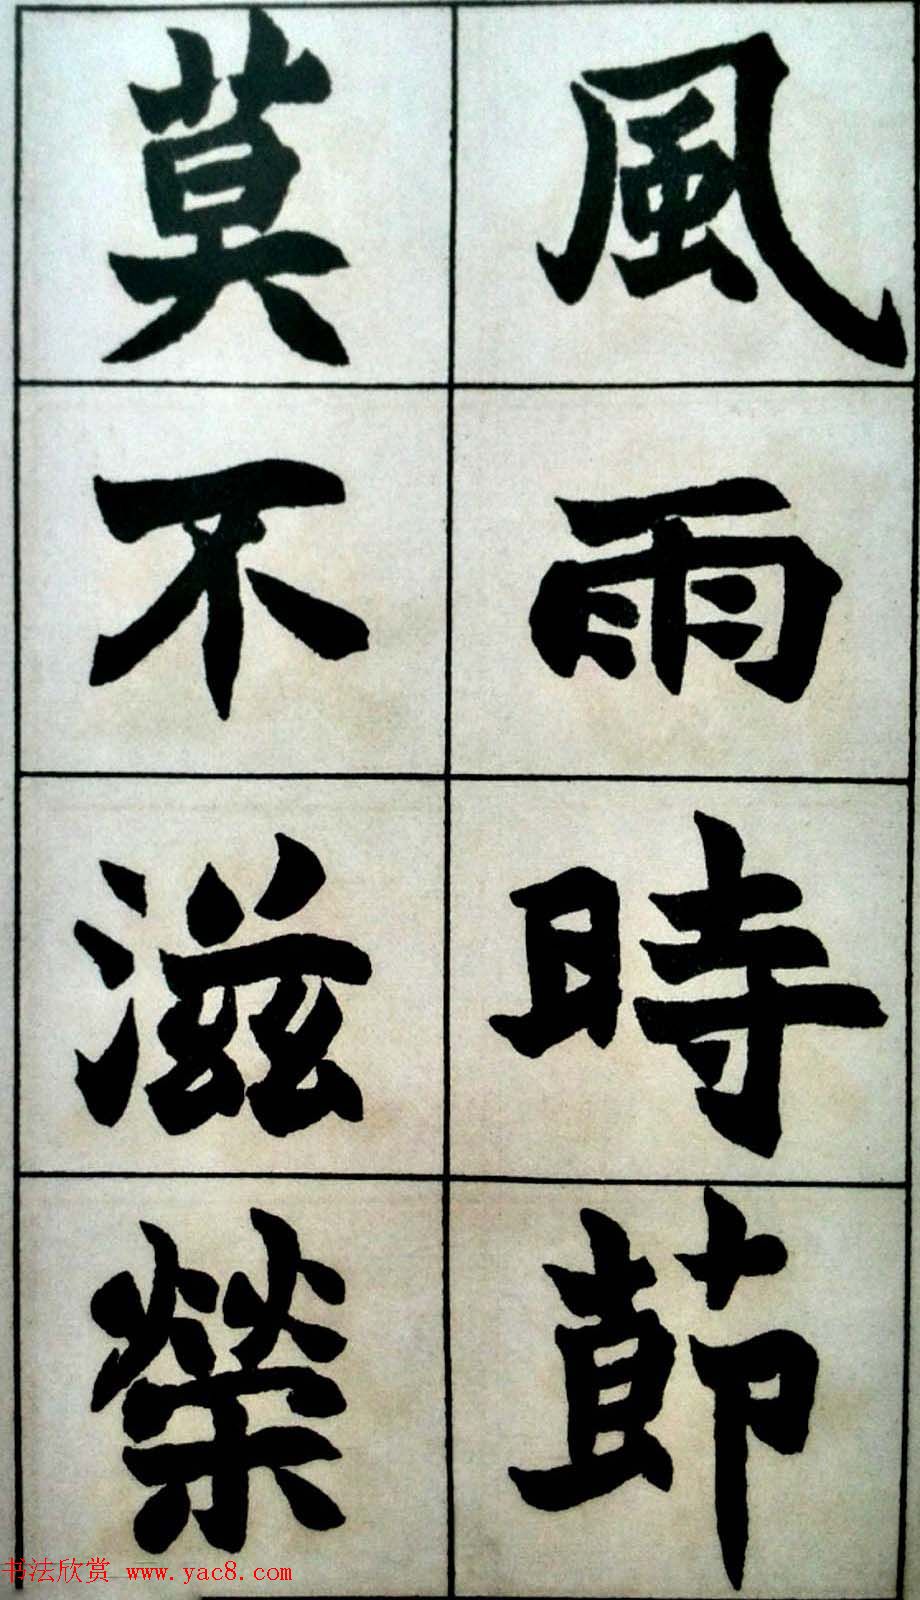 風雨時節
莫不滋榮
书法欣赏 www.yac8.com